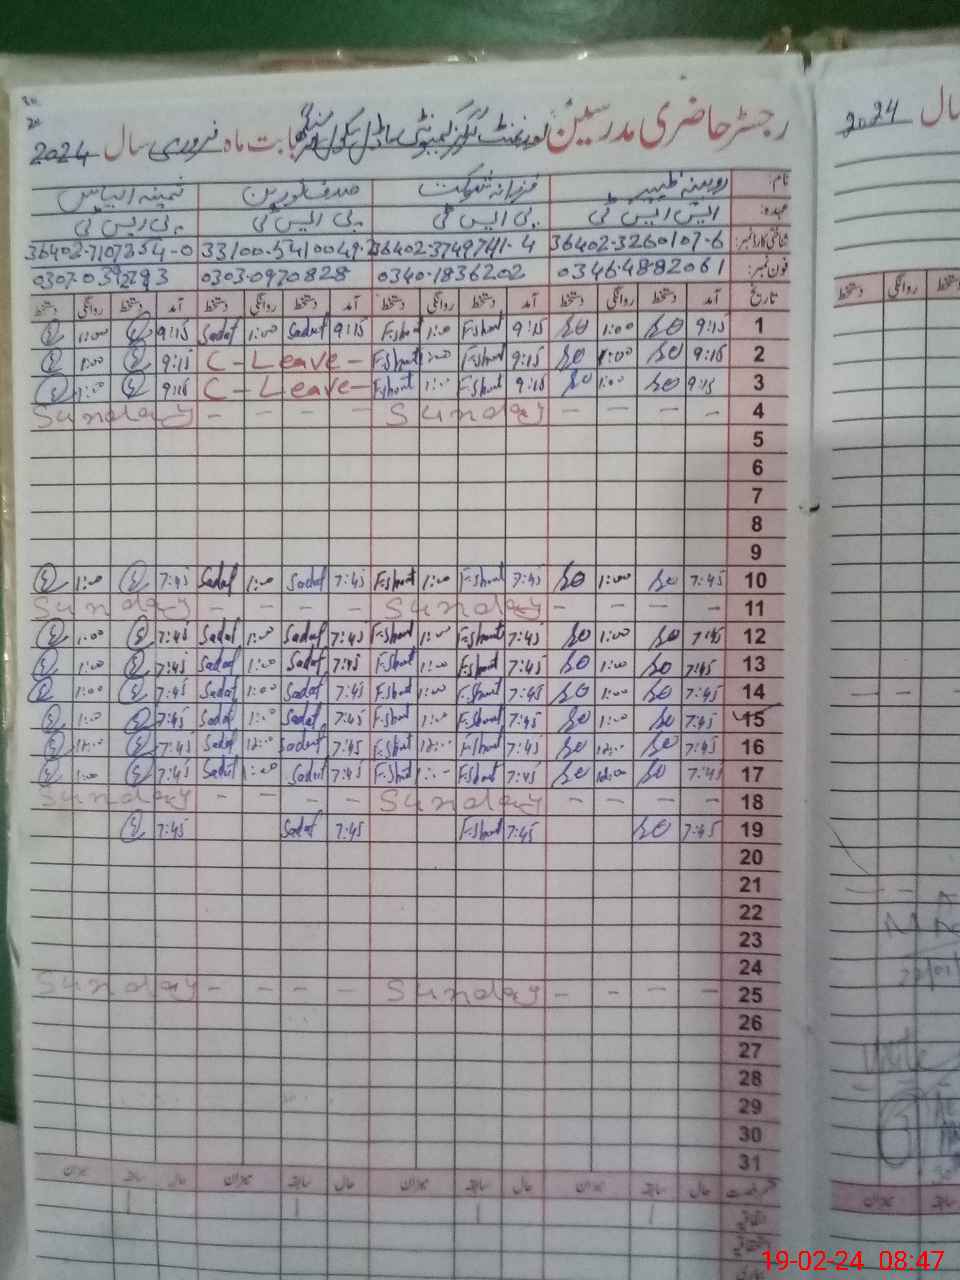 رجسٹر حاضری مدرسین گورنمنٹ گرلز کمیونٹی ماڈل سکول بابت ماہ فروری سال 2024
نام: روبینہ ظہیر فرزانہ شوکت صدف نورین ثمینہ الیاس
عہدہ: ایس ایس ٹی پی ایس ٹی پی ایس ٹی پی ایس ٹی
شناختی کارڈ نمبر: 36402-3260107-6 36402-3749741-4 33100-5410049- 36402-7107354-0
فون نمبر: 0346-4882061 0340-1836202 0303-0970828
تاریخ آمد دستخط روانگی دستخط آمد دستخط روانگی دستخط آمد دستخط روانگی دستخط آمد دستخط روانگی دستخط
1 9:15 1:00 9:15 F.Shout 1:00 F.Shout 9:15 Sadaf 1:00 Sadaf 9:15 1:00
2 9:15 1:00 9:15 F.Shout 1:00 F.Shout C - Leave - 9:15 1:00
3 9:15 1:00 9:15 F.Shout 1:00 F.Shout C - Leave - 9:15 1:00
4 Sunday - - - - Sunday - - - -
5
6
7
8
9
10 7:45 1:00 7:45 F.Shout 1:00 F.Shout 7:45 Sadaf 1:00 Sadaf 7:45 1:00
11 Sunday - - - - Sunday - - - -
12 7:45 1:00 7:45 F.Shout 1:00 F.Shout 7:45 Sadaf 1:00 Sadaf 7:45 1:00
13 7:45 1:00 7:45 F.Shout 1:00 F.Shout 7:45 Sadaf 1:00 Sadaf 7:45 1:00
14 7:45 1:00 7:45 F.Shout 1:00 F.Shout 7:45 Sadaf 1:00 Sadaf 7:45 1:00
15 7:45 1:00 7:45 F.Shout 1:00 F.Shout 7:45 Sadaf 1:00 Sadaf 7:45 1:00
16 7:45 12:00 7:45 F.Shout 12:00 F.Shout 7:45 Sadaf 12:00 Sadaf 7:45 12:00
17 7:45 7:45 F.Shout F.Shout 7:45 Sadaf 1:00 Sadaf 7:45 1:00
18 Sunday - - - - Sunday - - - -
19 7:45 7:45 F.Shout 7:45 Sadaf 7:45
20
21
22
23
24
25 Sunday - - - - Sunday - - - -
26
27
28
29
30
31
حال سابقہ میزان حال سابقہ میزان حال سابقہ میزان حال سابقہ میزان
سال 2024
دستخط روانگی
19-02-24 08:47